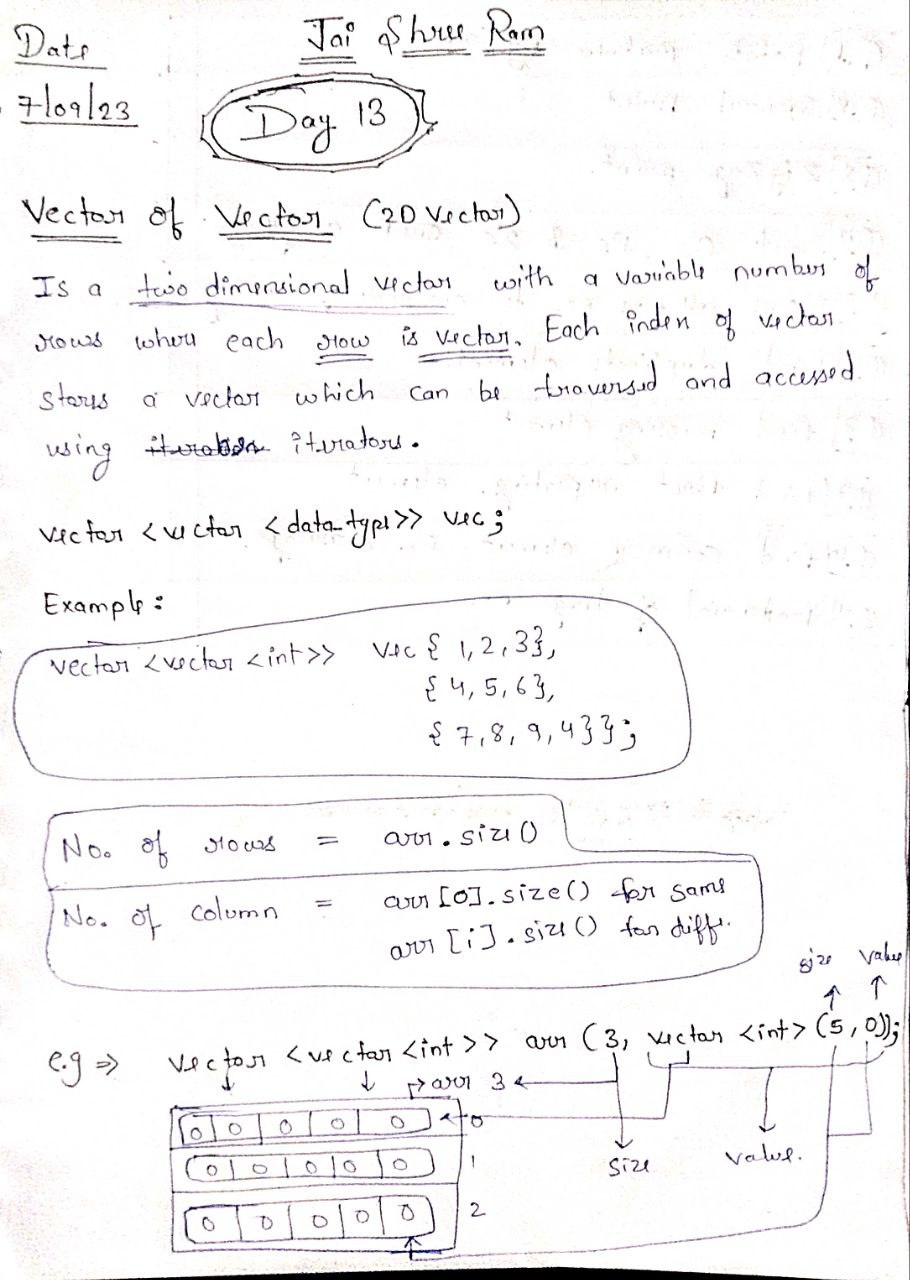 Date
Jai Shree Ram
7/09/23
Day 13
Vector of Vector (2D Vector)
Is a two dimensional vector with a variable number of
rows where each row is vector. Each index of vector
stores a vector which can be traversed and accessed
using iterators.
vector <vector <data-type>> vec;
Example:
vector <vector <int>> vec { 1,2,3},
{ 4,5,6},
{ 7,8,9,4}};
No. of rows = arr.size()
No. of column = arr[0].size() for same
arr[i].size() for diff.
size value
e.g ⇒ vector <vector <int>> arr (3, vector <int> (5,0));
arr 3
0 0 0 0 0 0
0 0 0 0 0 1
size value.
0 0 0 0 0 2